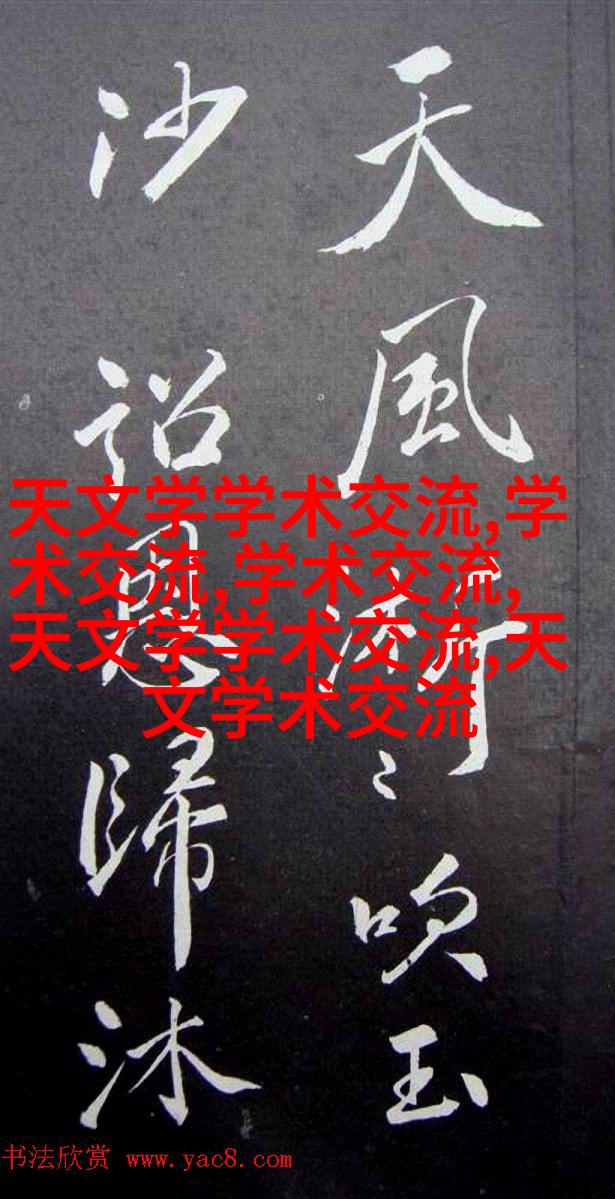 天風淅〻吹玉
沙詔恩歸沐
天文学学术交流,学
术交流,学术交流,
天文学学术交流,天
文学术交流
书法欣赏 www.yac8.com